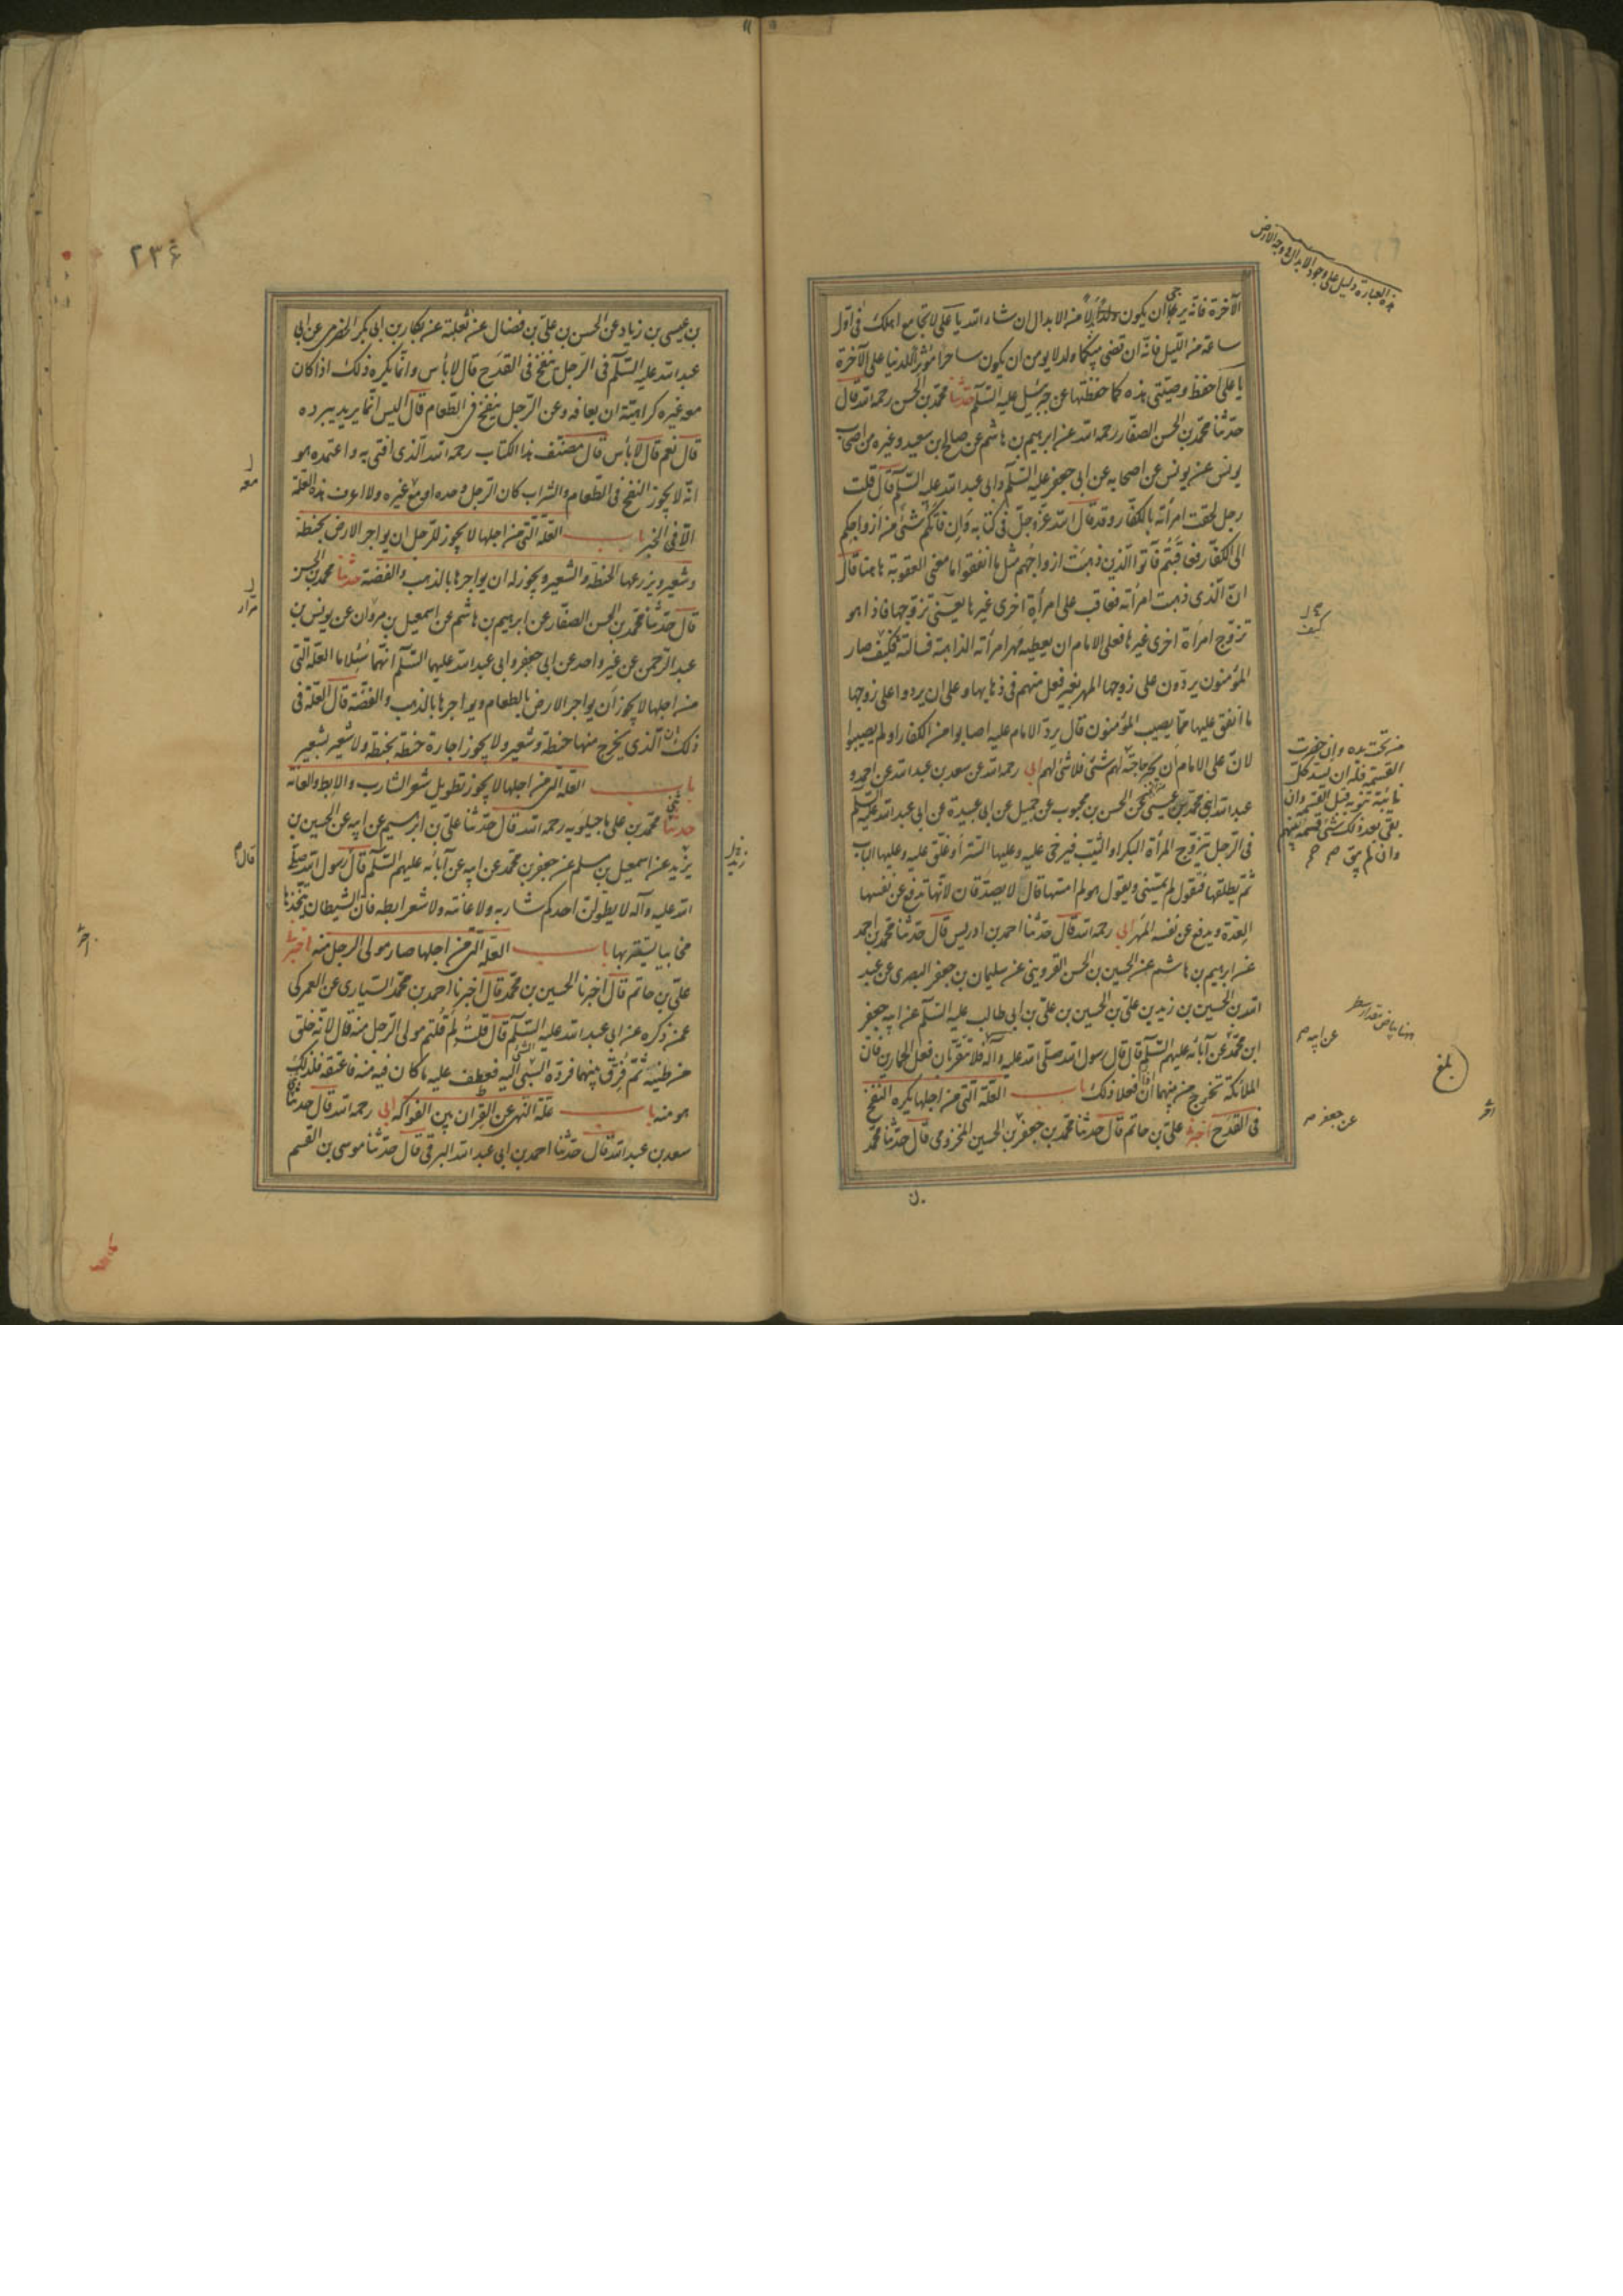 الآخرة فانه يرجى ان يكون ولدا بدلا من الابدال ان شاء الله يا علي لا تجامع اهلك في اول
ساعة من الليل فانه ان قضى بينكما ولد لا يؤمن ان يكون ساحرا مؤثرا للدنيا على الآخرة
يا علي احفظ وصيتي هذه كما حفظتها عن جبرئيل عليه السلم حدثنا محمد بن الحسن رحمه الله قال
حدثنا محمد بن الحسن الصفار رحمه الله عن ابرهيم بن هاشم عن صالح بن سعيد وغيره من اصحاب
يونس عن يونس عن اصحابه عن ابي جعفر عليه السلم وابي عبد الله عليه السلم قال قلت
رجل لحقت امرأته بالكفار وقد قال الله عز وجل في كتابه وان فاتكم شئ من ازواجكم
الى الكفار فعاقبتم فآتوا الذين ذهبت ازواجهم مثل ما انفقوا ما معنى العقوبة هاهنا قال
ان الذي ذهبت امرأته فعاقب على امرأة اخرى غيرها يعني تزوجها فاذا هو
تزوج امرأة اخرى غيرها فعلى الامام ان يعطيه مهر امرأته الذاهبة فسألته فكيف صار
المؤمنون يردون على زوجها المهر بغير فعل منهم في ذهابها وعلى ان يردوا على زوجها
ما انفق عليها مما يصيب المؤمنون قال يرد الامام عليه اصابوا من الكفار او لم يصيبوا
لان على الامام ان يجيز حاجته لهم شئ فلا شئ لهم ابي رحمه الله عن سعد بن عبد الله عن احمد و
عبد الله ابني محمد بن عيسى عن الحسن بن محبوب عن جميل عن ابي عبيدة عن ابي عبد الله عليه السلم
في الرجل يتزوج المرأة البكر او الثيب فيرخى عليه وعليها الستر او غلق عليه وعليها الباب
ثم يطلقها فتقول لم يمسني ويقول هو لم امسها قال لا يصدقان لانها تدفع عن نفسها
العدة ويدفع عن نفسه المهر ابي رحمه الله قال حدثنا احمد بن ادريس قال حدثنا محمد بن احمد
عن ابرهيم بن هاشم عن الحسين بن الحسن القزويني عن سليمان بن جعفر البصري عن عبد
الله بن الحسين بن زيد بن علي بن الحسين بن علي بن ابي طالب عليه السلم عن ابيه جعفر
ابن محمد عن آبائه عليهم السلم قال قال رسول الله صلى الله عليه وآله فلا تتعريان فعل الحمارين فان
الملائكة تخرج من بينهما ان فعلا ذلك باب العلة التي من اجلها يكره النفخ
في القدح اخبرنا علي بن حاتم قال حدثنا محمد بن جعفر بن الحسين المخزومي قال حدثنا محمد
هذه العبارة دليل على وجود الابدال في وجه الارض
كيف
من تحت يده وان حضرت
القسمة فله ان يسد كل
نائبة تنوبه قبل القسمة وان
بقي بعد ذلك شئ قسمه بينهم
وان لم يبق
هنا بياض مقدار سطر
عن ابيه
بلغ
عن جعفر
۲۳۶
بن عيسى بن زياد عن الحسن بن علي بن فضال عن ثعلبة عن بكار بن ابي بكر الحضرمي عن ابي
عبد الله عليه السلم في الرجل ينفخ في القدح قال لا بأس وانما يكره ذلك اذا كان
معه غيره كراهية ان يعافه وعن الرجل ينفخ في الطعام قال اليس انما يريد يبرده
قال نعم قال لا بأس قال مصنف هذا الكتاب رحمه الله الذي افتي به واعتمده هو
انه لا يجوز النفخ في الطعام والشراب كان الرجل وحده او مع غيره ولا اعرف هذه العلة
الا في الخبر باب العلة التي من اجلها لا يجوز للرجل ان يواجر الارض بحنطة
وشعير ويزرعها الحنطة والشعير ويجوز له ان يواجرها بالذهب والفضة حدثنا محمد بن الحسن
قال حدثنا محمد بن الحسن الصفار عن ابرهيم بن هاشم عن اسمعيل بن مروان عن يونس بن
عبد الرحمن عن غير واحد عن ابي جعفر وابي عبد الله عليهما السلم انهما سئلا ما العلة التي
من اجلها لا يجوز ان يواجر الارض بالطعام ويواجرها بالذهب والفضة قال العلة في
ذلك ان الذي يخرج منها حنطة وشعير ولا يجوز اجارة حنطة بحنطة ولا شعير بشعير
باب العلة التي من اجلها لا يجوز تطويل شعر الشارب والابط والعانة
حدثنا محمد بن علي ماجيلويه رحمه الله قال حدثنا علي بن ابرهيم عن ابيه عن الحسين بن
يزيد عن اسمعيل بن مسلم عن جعفر بن محمد عن ابيه عن آبائه عليهم السلم قال رسول الله صلى
الله عليه وآله لا يطولن احدكم شاربه ولا عانته ولا شعر ابطه فان الشيطان يتخذها
مخابيا يستتر بها باب العلة التي من اجلها صار مولى الرجل منه اخبرنا
علي بن حاتم قال اخبرنا الحسين بن محمد قال اخبرنا احمد بن محمد السياري عن العمركي
عمن ذكره عن ابي عبد الله عليه السلم قال قلت لم قلتم مولى الرجل منه قال لانه خلق
من طينته ثم فرق بينهما فرده السبي اليه فعطف عليه ما كان فيه منه فاعتقه فلذلك
هو منه باب علة النهي عن القران بين الفواكه ابي رحمه الله قال حدثنا
سعد بن عبد الله قال حدثنا احمد بن ابي عبد الله البرقي قال حدثنا موسى بن القسم
معه
مرار
قال